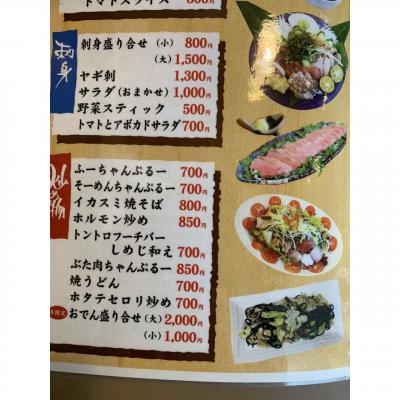 トマトスライス 800円
刺身
刺身盛り合せ (小) 800円
(大) 1,500円
ヤギ刺 1,300円
サラダ (おまかせ) 1,000円
野菜スティック 500円
トマトとアボカドサラダ 700円
炒め物
ふーちゃんぷるー 700円
そーめんちゃんぷるー 700円
イカスミ焼そば 800円
ホルモン炒め 850円
トントロフーチバー
しめじ和え 700円
ぶた肉ちゃんぷるー 850円
焼うどん 700円
ホタテセロリ炒め 700円
おでん盛り合せ (大) 2,000円
(小) 1,000円